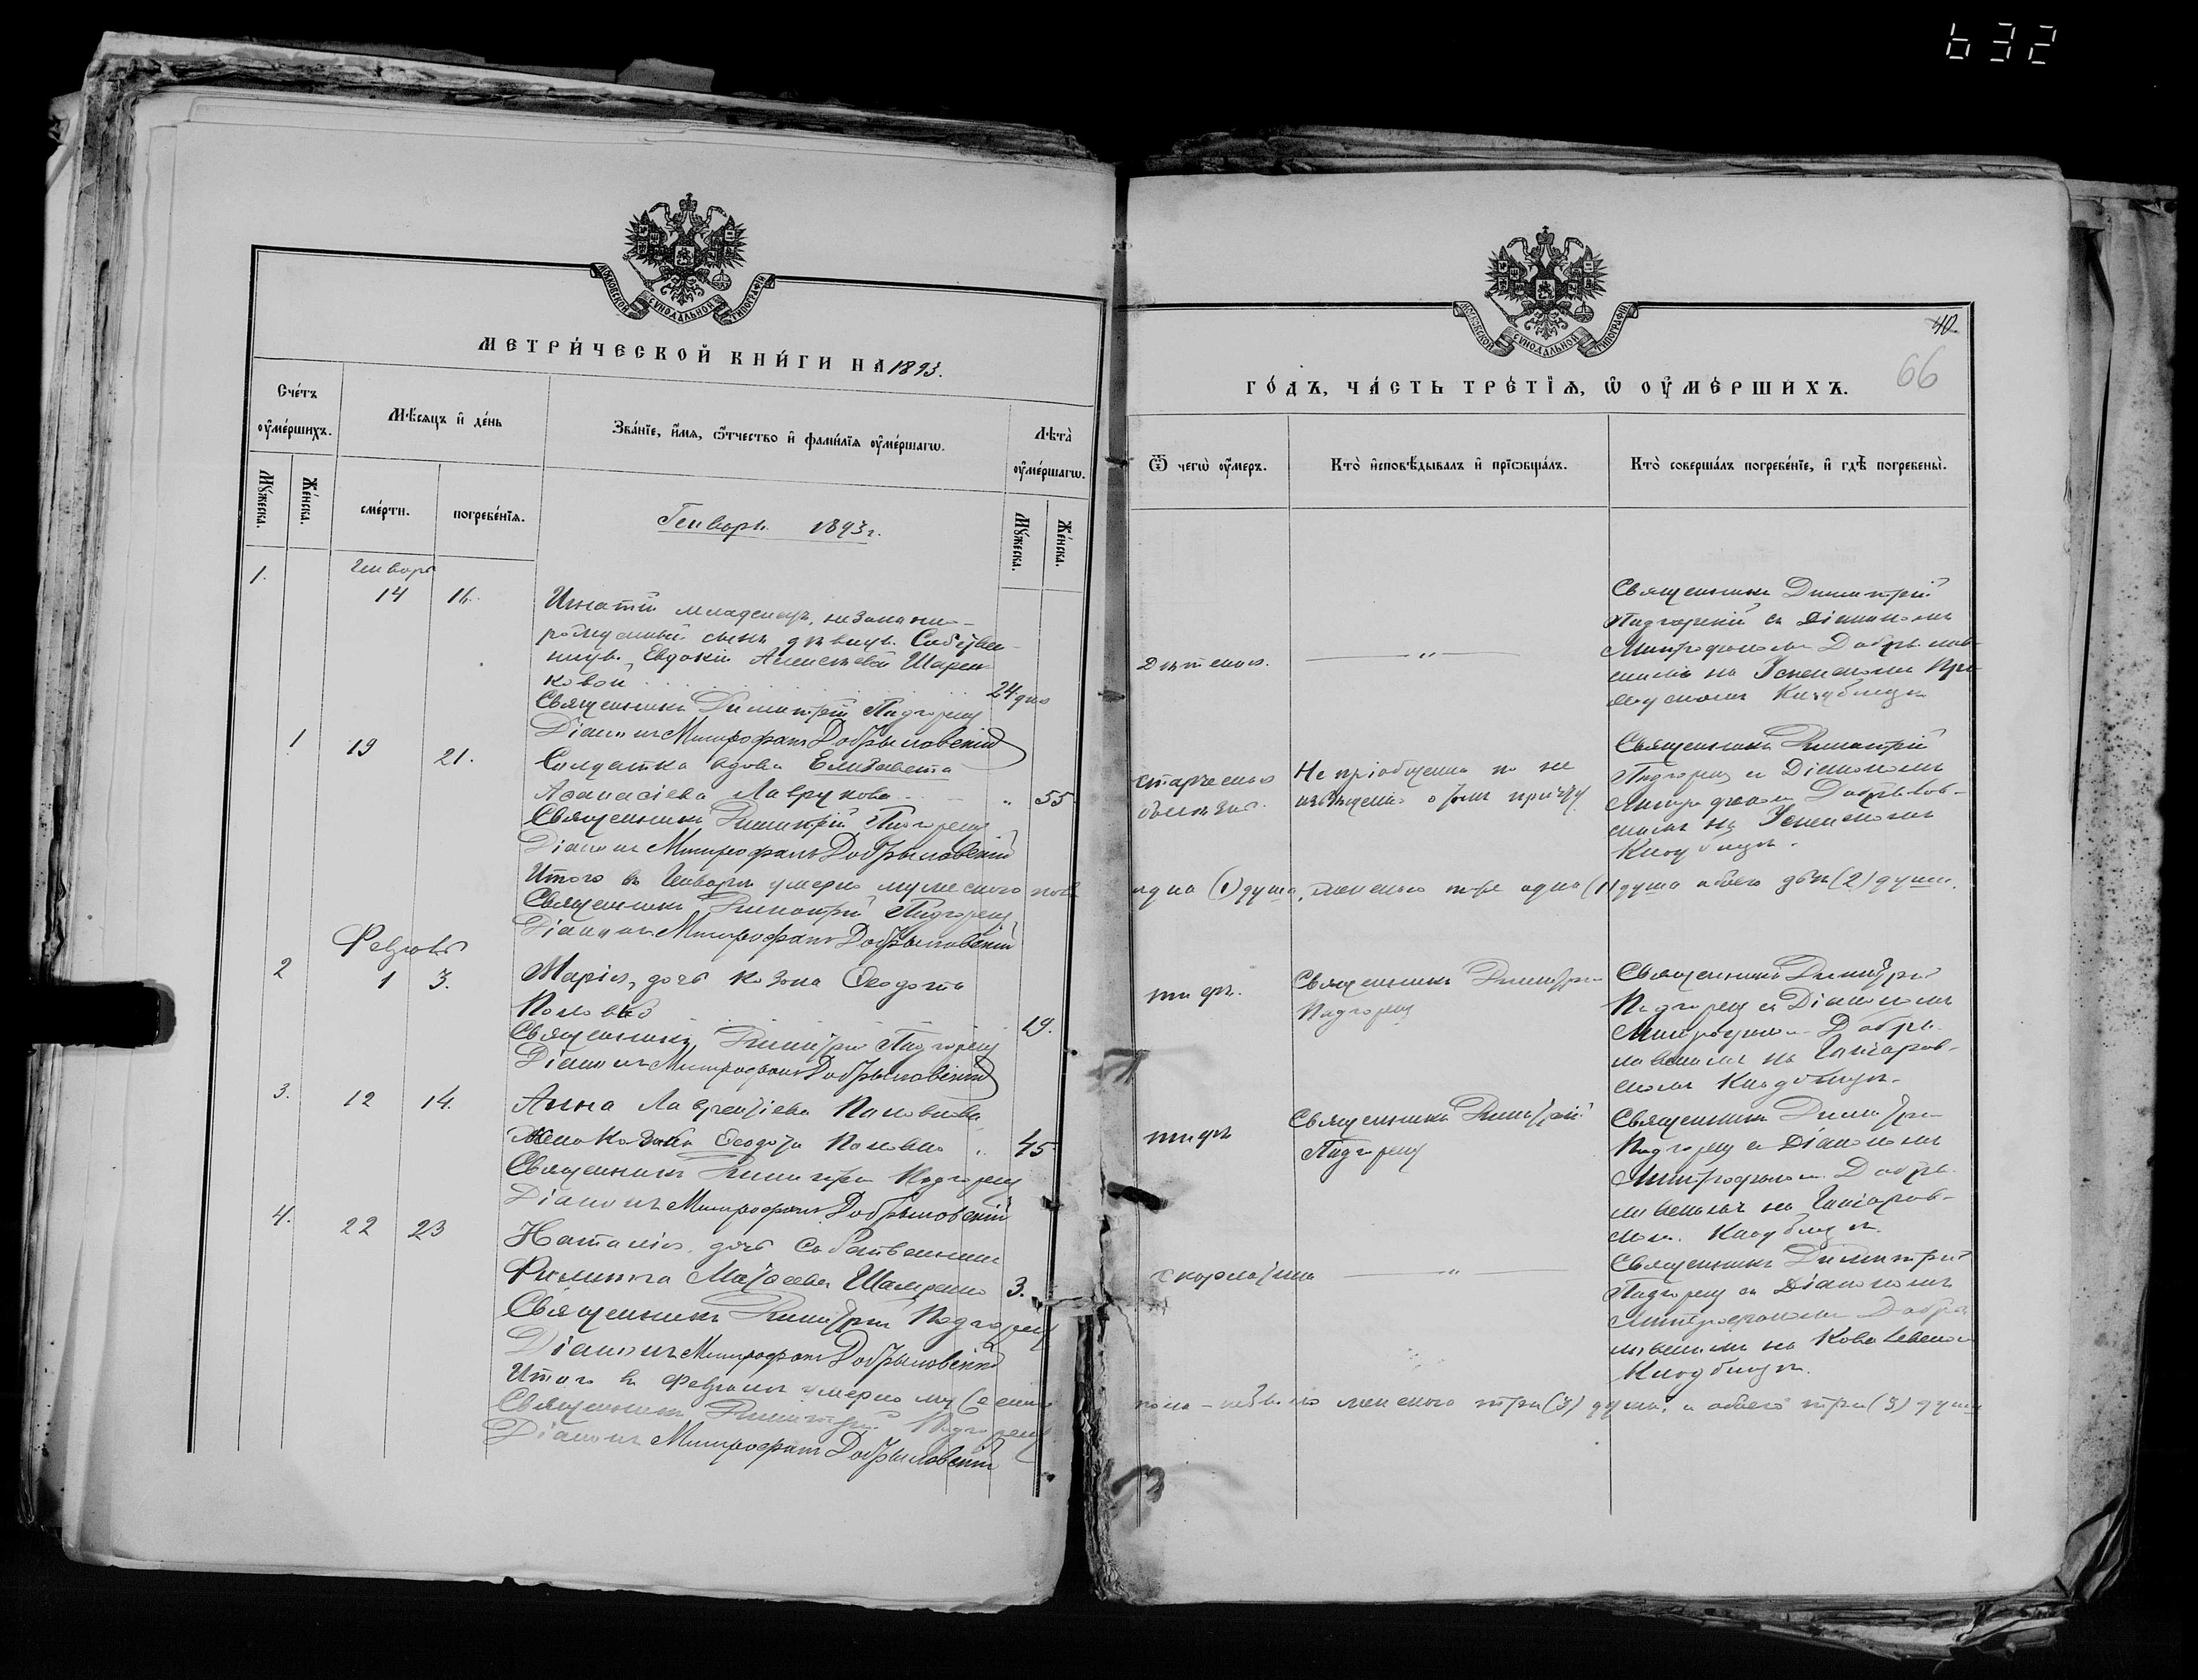 632
МОСКОВСКОЙ СѴНОДАЛЬНОЙ ТИПОГРАФІИ
МЕТРИ́ЧЕСКОЙ КНИ́ГИ НА 1893.
Сче́тъ оу҆ме́ршихъ.
Мѣ́сяцъ и҆ де́нь
Зва́нїе, и҆́мѧ, ѻ҆́тчество и҆ фами́лїѧ оу҆ме́ршагѡ.
Лѣ́та̀ оу҆ме́ршагѡ.
Мꙋ́жеска.
Же́нска.
сме́рти.
погребе́нїѧ.
Мꙋ́жеска.
Же́нска.
Генварь 1893 г.
1.
Генварь
14
16.
Игнатій младенецъ, незаконно-
рожденный сынъ дѣвицы Собствен-
ницы Евдокіи Алексѣевой
24 дня
Священникъ Димитрій Подгорец
Діаконъ Митрофанъ Добрыловскій
1
19
21.
Солдатка вдова Елизавета
Аѳанасіева Лаврукова
55
Священникъ Димитрій Подгорец
Діаконъ Митрофанъ Добрыловскій
Итого въ Генварѣ умерло мужескаго пола
Священникъ Димитрій Подгорец
Діаконъ Митрофанъ Добрыловскій
Февраль
2
1
3.
Марія, дочь козака Ѳеодота
19.
Священникъ Димитрій Подгорец
Діаконъ Митрофанъ Добрыловскій
3.
12
14.
Анна Лаврентіева
жена Козака Ѳеодота
45
Священникъ Димитрій Подгорец
Діаконъ Митрофанъ Добрыловскій
4.
22
23
Наталія, дочь Собственника
Филиппа Матѳеева
3.
Священникъ Димитрій Подгорец
Діаконъ Митрофанъ Добрыловскій
Итого въ Февралѣ умерло мужескаго
Священникъ Димитрій Подгорец
Діаконъ Митрофанъ Добрыловскій
МОСКОВСКОЙ СѴНОДАЛЬНОЙ ТИПОГРАФІИ
40.
66
ГО́ДЪ, ЧА́СТЬ ТРЕ́ТЇѦ, Ѡ҆ ОУ҆МЕ́РШИХЪ.
Ѿ чегѡ̀ оу҆́меръ.
Кто̀ и҆сповѣ́дывалъ и҆ прїѡбща́лъ.
Кто̀ соверша́лъ погребе́нїе, и҆ гдѣ̀ погребены̀.
Священникъ Димитрій
Подгорецкій съ Діакономъ
Митрофаномъ Добрылов-
скимъ на Успенскомъ При-
ходскомъ Кладбищѣ
Священникъ Димитрій
Подгорец съ Діакономъ
Митрофаномъ Добрылов-
скимъ на Успенскомъ
Кладбищѣ.
старческая
Не пріобщена по не
извѣщенію о томъ причту
одна (1) душа, женскаго тоже одна (1) душа обоего двѣ (2) души.
тифъ.
Священникъ Димитрій
Подгорец
Священникъ Димитрій
Подгорец съ Діакономъ
Митрофаномъ Добры-
ловскимъ на Гончаров-
скомъ Кладбищѣ.
тифъ
Священникъ Димитрій
Подгорец
Священникъ Димитрій
Подгорец съ Діакономъ
Митрофаномъ Добры-
ловскимъ на Гончаров-
скомъ Кладбищѣ.
скарлатина
Священникъ Димитрій
Подгорец съ Діакономъ
Митрофаномъ Добры-
ловскимъ на Ковалевском
Кладбищѣ.
пола – не было женскаго три (3) души, а обоего три (3) души